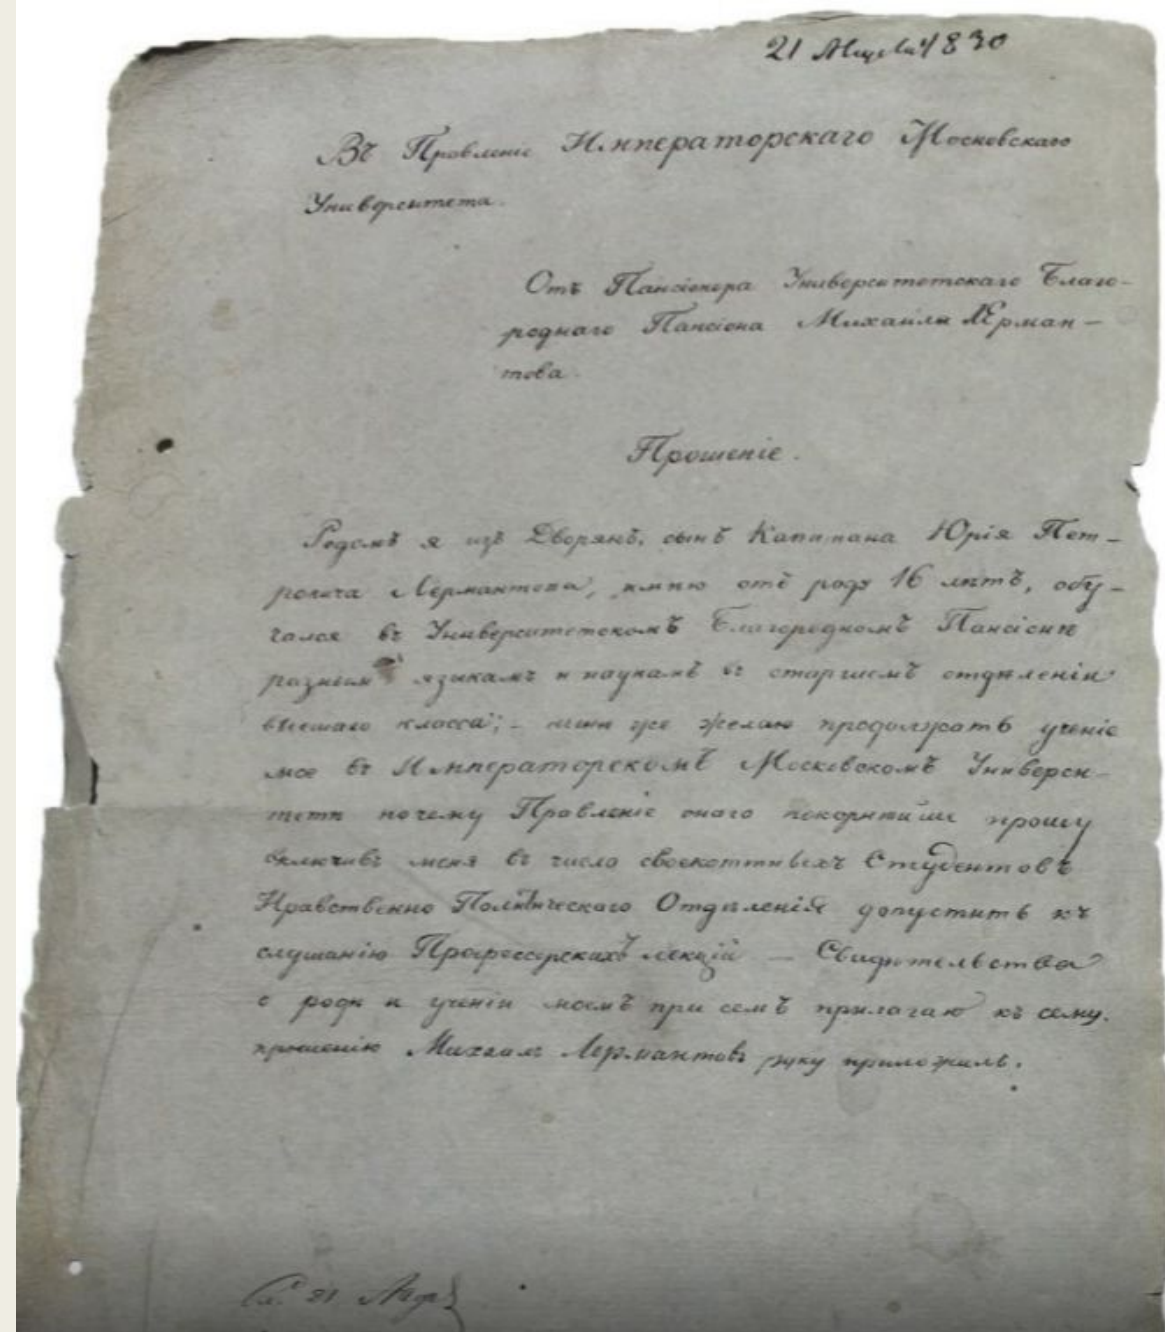 21 Августа 1830
Въ Правленіе Императорскаго Московскаго
Университета.
Отъ Пансіонера Университетскаго Благо-
роднаго Пансіона Михаила Лерман-
това.
Прошеніе.
Родомъ я изъ Дворянъ, сынъ Капитана Юрія Пет-
ровича Лермантова, имѣю отъ роду 16 лѣтъ, обу-
чался въ Университетскомъ Благородномъ Пансіонѣ
разнымъ языкамъ и наукамъ въ старшемъ отдѣленіи
высшаго класса; - нынѣ же желаю продолжать ученіе
мое въ Императорскомъ Московскомъ Универси-
тетѣ почему Правленіе онаго покорнѣйше прошу
включивъ меня въ число своекоштныхъ Студентовъ
Нравственно Политическаго Отдѣленія допустить къ
слушанію Профессорскихъ лекцій — Свидѣтельства
о родѣ и ученіи моемъ при семъ прилагаю къ сему.
прошенію Михаилъ Лермантовъ руку приложилъ.